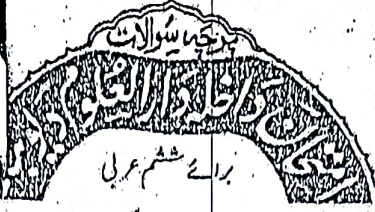 پرچہ سوالات
امتحان داخلہ دارالعلوم دیوبند
برائے ششم عربی